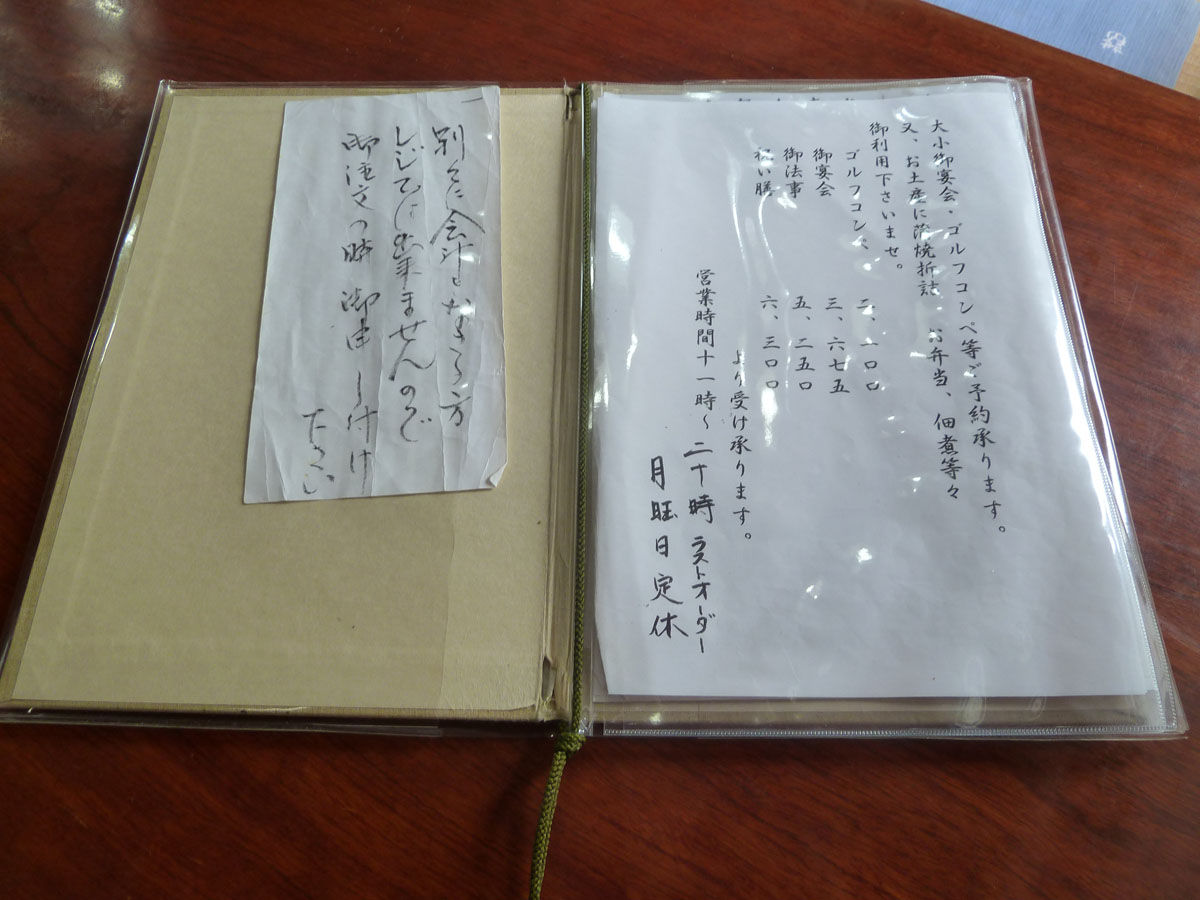 大小御宴会、ゴルフコンペ等ご予約承ります。
又、お土産に蒲焼折詰、お弁当、佃煮等々
御利用下さいませ。
ゴルフコンペ 二、一〇〇
御宴会 三、六七五
御法事 五、二五〇
祝い膳 六、三〇〇
より受け承ります。
営業時間十一時～二十時 ラストオーダー
月曜日定休
別々に会計となさる方
レジでは出来ませんので
御注文の時 御申し付け
下さい